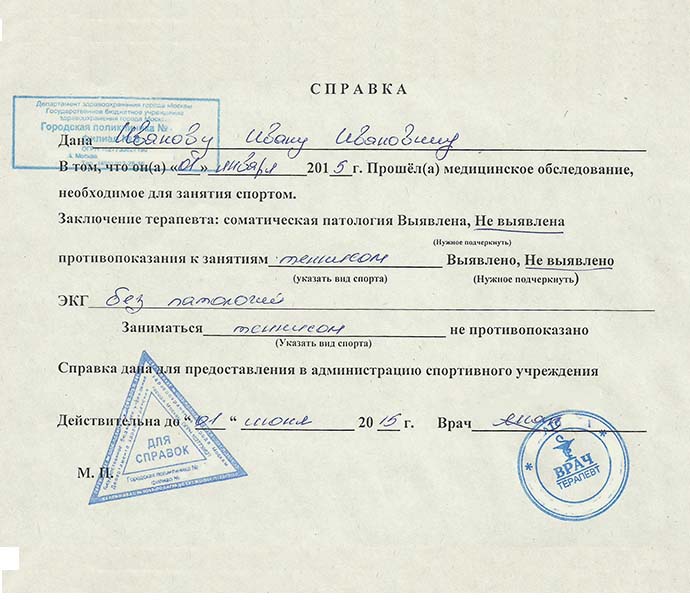 СПРАВКА
Департамент здравоохранения города Москвы
Государственное бюджетное учреждение
здравоохранения города Москвы
Городская поликлиника №
Филиал №
г. Москва
Дана Иванову Ивану Ивановичу
В том, что он(а) «01» января 2015г. Прошёл(а) медицинское обследование,
необходимое для занятия спортом.
Заключение терапевта: соматическая патология Выявлена, Не выявлена
(Нужное подчеркнуть)
противопоказания к занятиям теннисом Выявлено, Не выявлено
(указать вид спорта) (Нужное подчеркнуть)
ЭКГ без патологий
Заниматься теннисом не противопоказано
(Указать вид спорта)
Справка дана для предоставления в администрацию спортивного учреждения
Действительна до “ 01 “ июня 20 15 г. Врач
М. П.
ДЛЯ
СПРАВОК
Городская поликлиника №
филиал №
ВРАЧ
ТЕРАПЕВТ